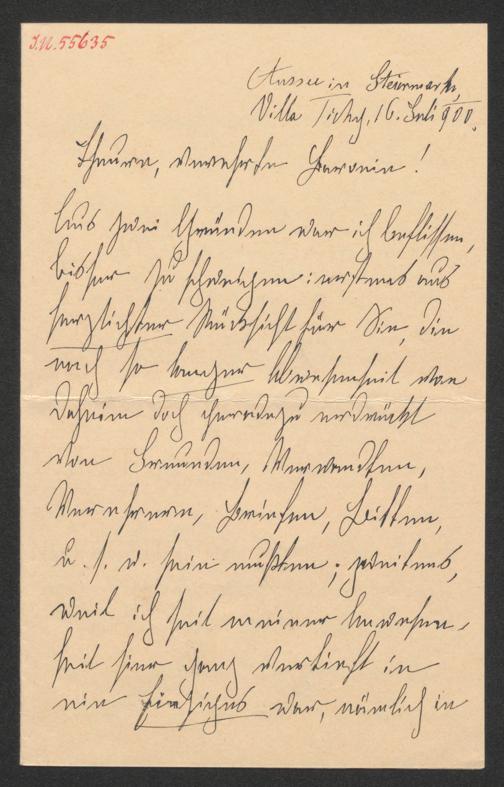 J.N. 55635
Aussee in Steiermark,
Villa Tichy, 16. Juli 900.
Theure, verehrte Baronin!
Aus zwei Gründen war ich beflissen,
bisher zu schweigen: erstens aus
herzlichster Rücksicht für Sie, die
nach so langer Abwesenheit von
Daheim doch geradezu erdrückt
von Freunden, Verwandten,
Verehrern, Briefen, Bitten,
u. s. w. sein mußten; zweitens,
weil ich seit meiner Anwesen-
heit hier ganz vertieft in
ein Einziges war, nämlich in